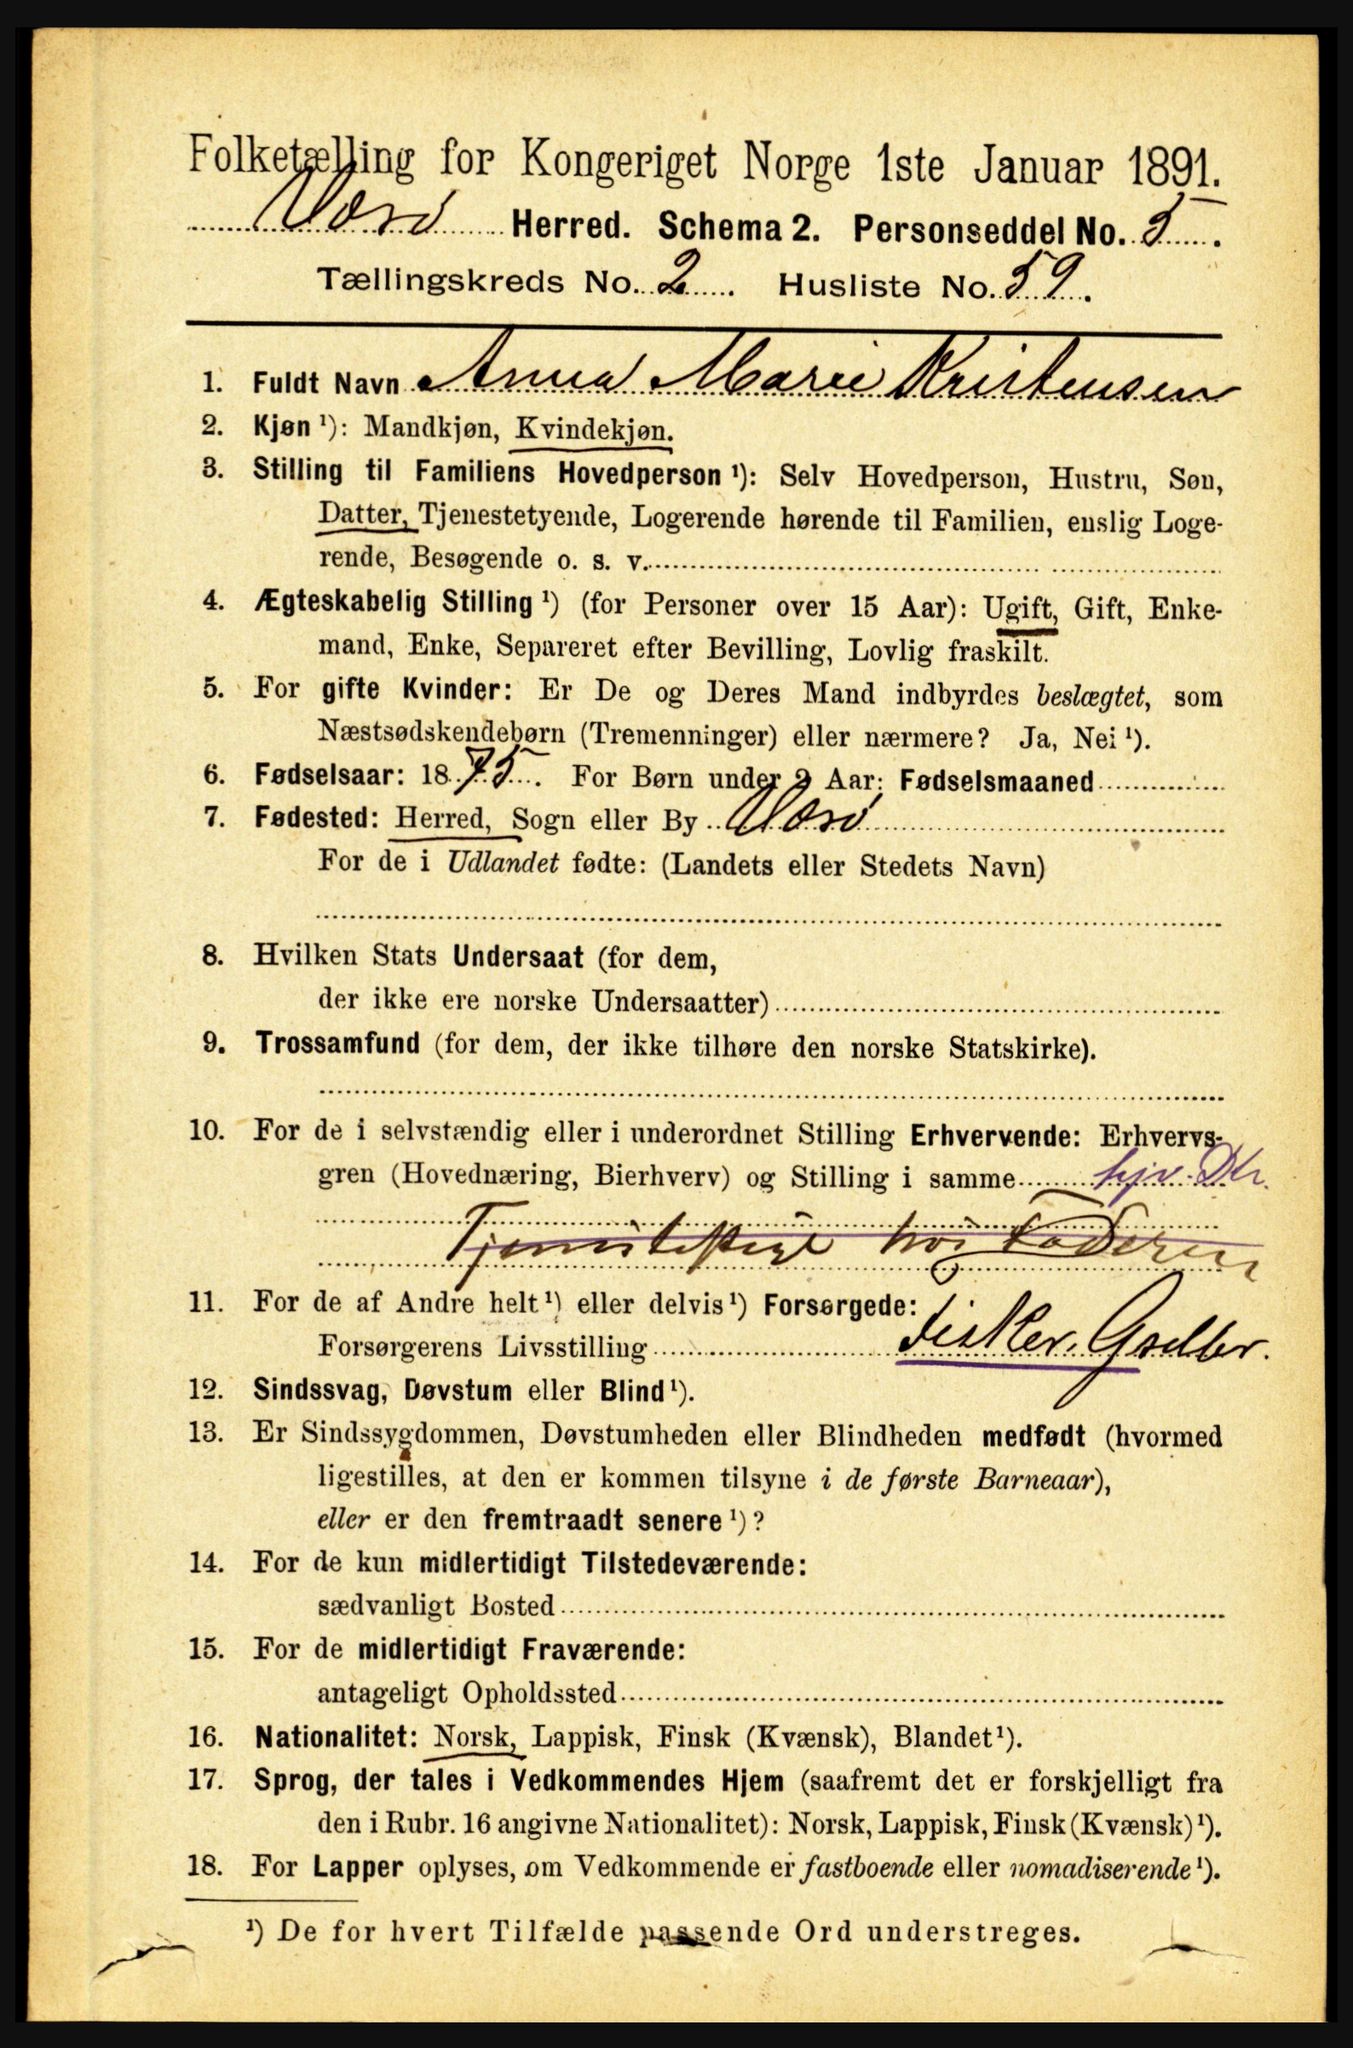 Folketælling for Kongeriget Norge 1ste Januar 1891.
Værø Herred. Schema 2. Personseddel No. 5.
Tællingskreds No. 2. Husliste No. 59.
1. Fuldt Navn Anna Marie Kristensen
2. Kjøn ¹): Mandkjøn, Kvindekjøn.
3. Stilling til Familiens Hovedperson ¹): Selv Hovedperson, Hustru, Søn,
Datter, Tjenestetyende, Logerende hørende til Familien, enslig Loge-
rende, Besøgende o. s. v.
4. Ægteskabelig Stilling ¹) (for Personer over 15 Aar): Ugift, Gift, Enke-
mand, Enke, Separeret efter Bevilling, Lovlig fraskilt.
5. For gifte Kvinder: Er De og Deres Mand indbyrdes beslægtet, som
Næstsødskendebørn (Tremenninger) eller nærmere? Ja, Nei ¹).
6. Fødselsaar: 1875. For Børn under 2 Aar: Fødselsmaaned
7. Fødested: Herred, Sogn eller By Værø
For de i Udlandet fødte: (Landets eller Stedets Navn)
8. Hvilken Stats Undersaat (for dem,
der ikke ere norske Undersaatter)
9. Trossamfund (for dem, der ikke tilhøre den norske Statskirke).
10. For de i selvstændig eller i underordnet Stilling Erhvervende: Erhvervs-
gren (Hovednæring, Bierhverv) og Stilling i samme hjv. Dtr.
hos Faderen
11. For de af Andre helt ¹) eller delvis ¹) Forsørgede:
Forsørgerens Livsstilling Fisker, Gaardbr.
12. Sindssvag, Døvstum eller Blind ¹).
13. Er Sindssygdommen, Døvstumheden eller Blindheden medfødt (hvormed
ligestilles, at den er kommen tilsyne i de første Barneaar),
eller er den fremtraadt senere ¹)?
14. For de kun midlertidigt Tilstedeværende:
sædvanligt Bosted
15. For de midlertidigt Fraværende:
antageligt Opholdssted
16. Nationalitet: Norsk, Lappisk, Finsk (Kvænsk), Blandet ¹).
17. Sprog, der tales i Vedkommendes Hjem (saafremt det er forskjelligt fra
den i Rubr. 16 angivne Nationalitet): Norsk, Lappisk, Finsk (Kvænsk) ¹).
18. For Lapper oplyses, om Vedkommende er fastboende eller nomadiserende ¹).
¹) De for hvert Tilfælde passende Ord understreges.